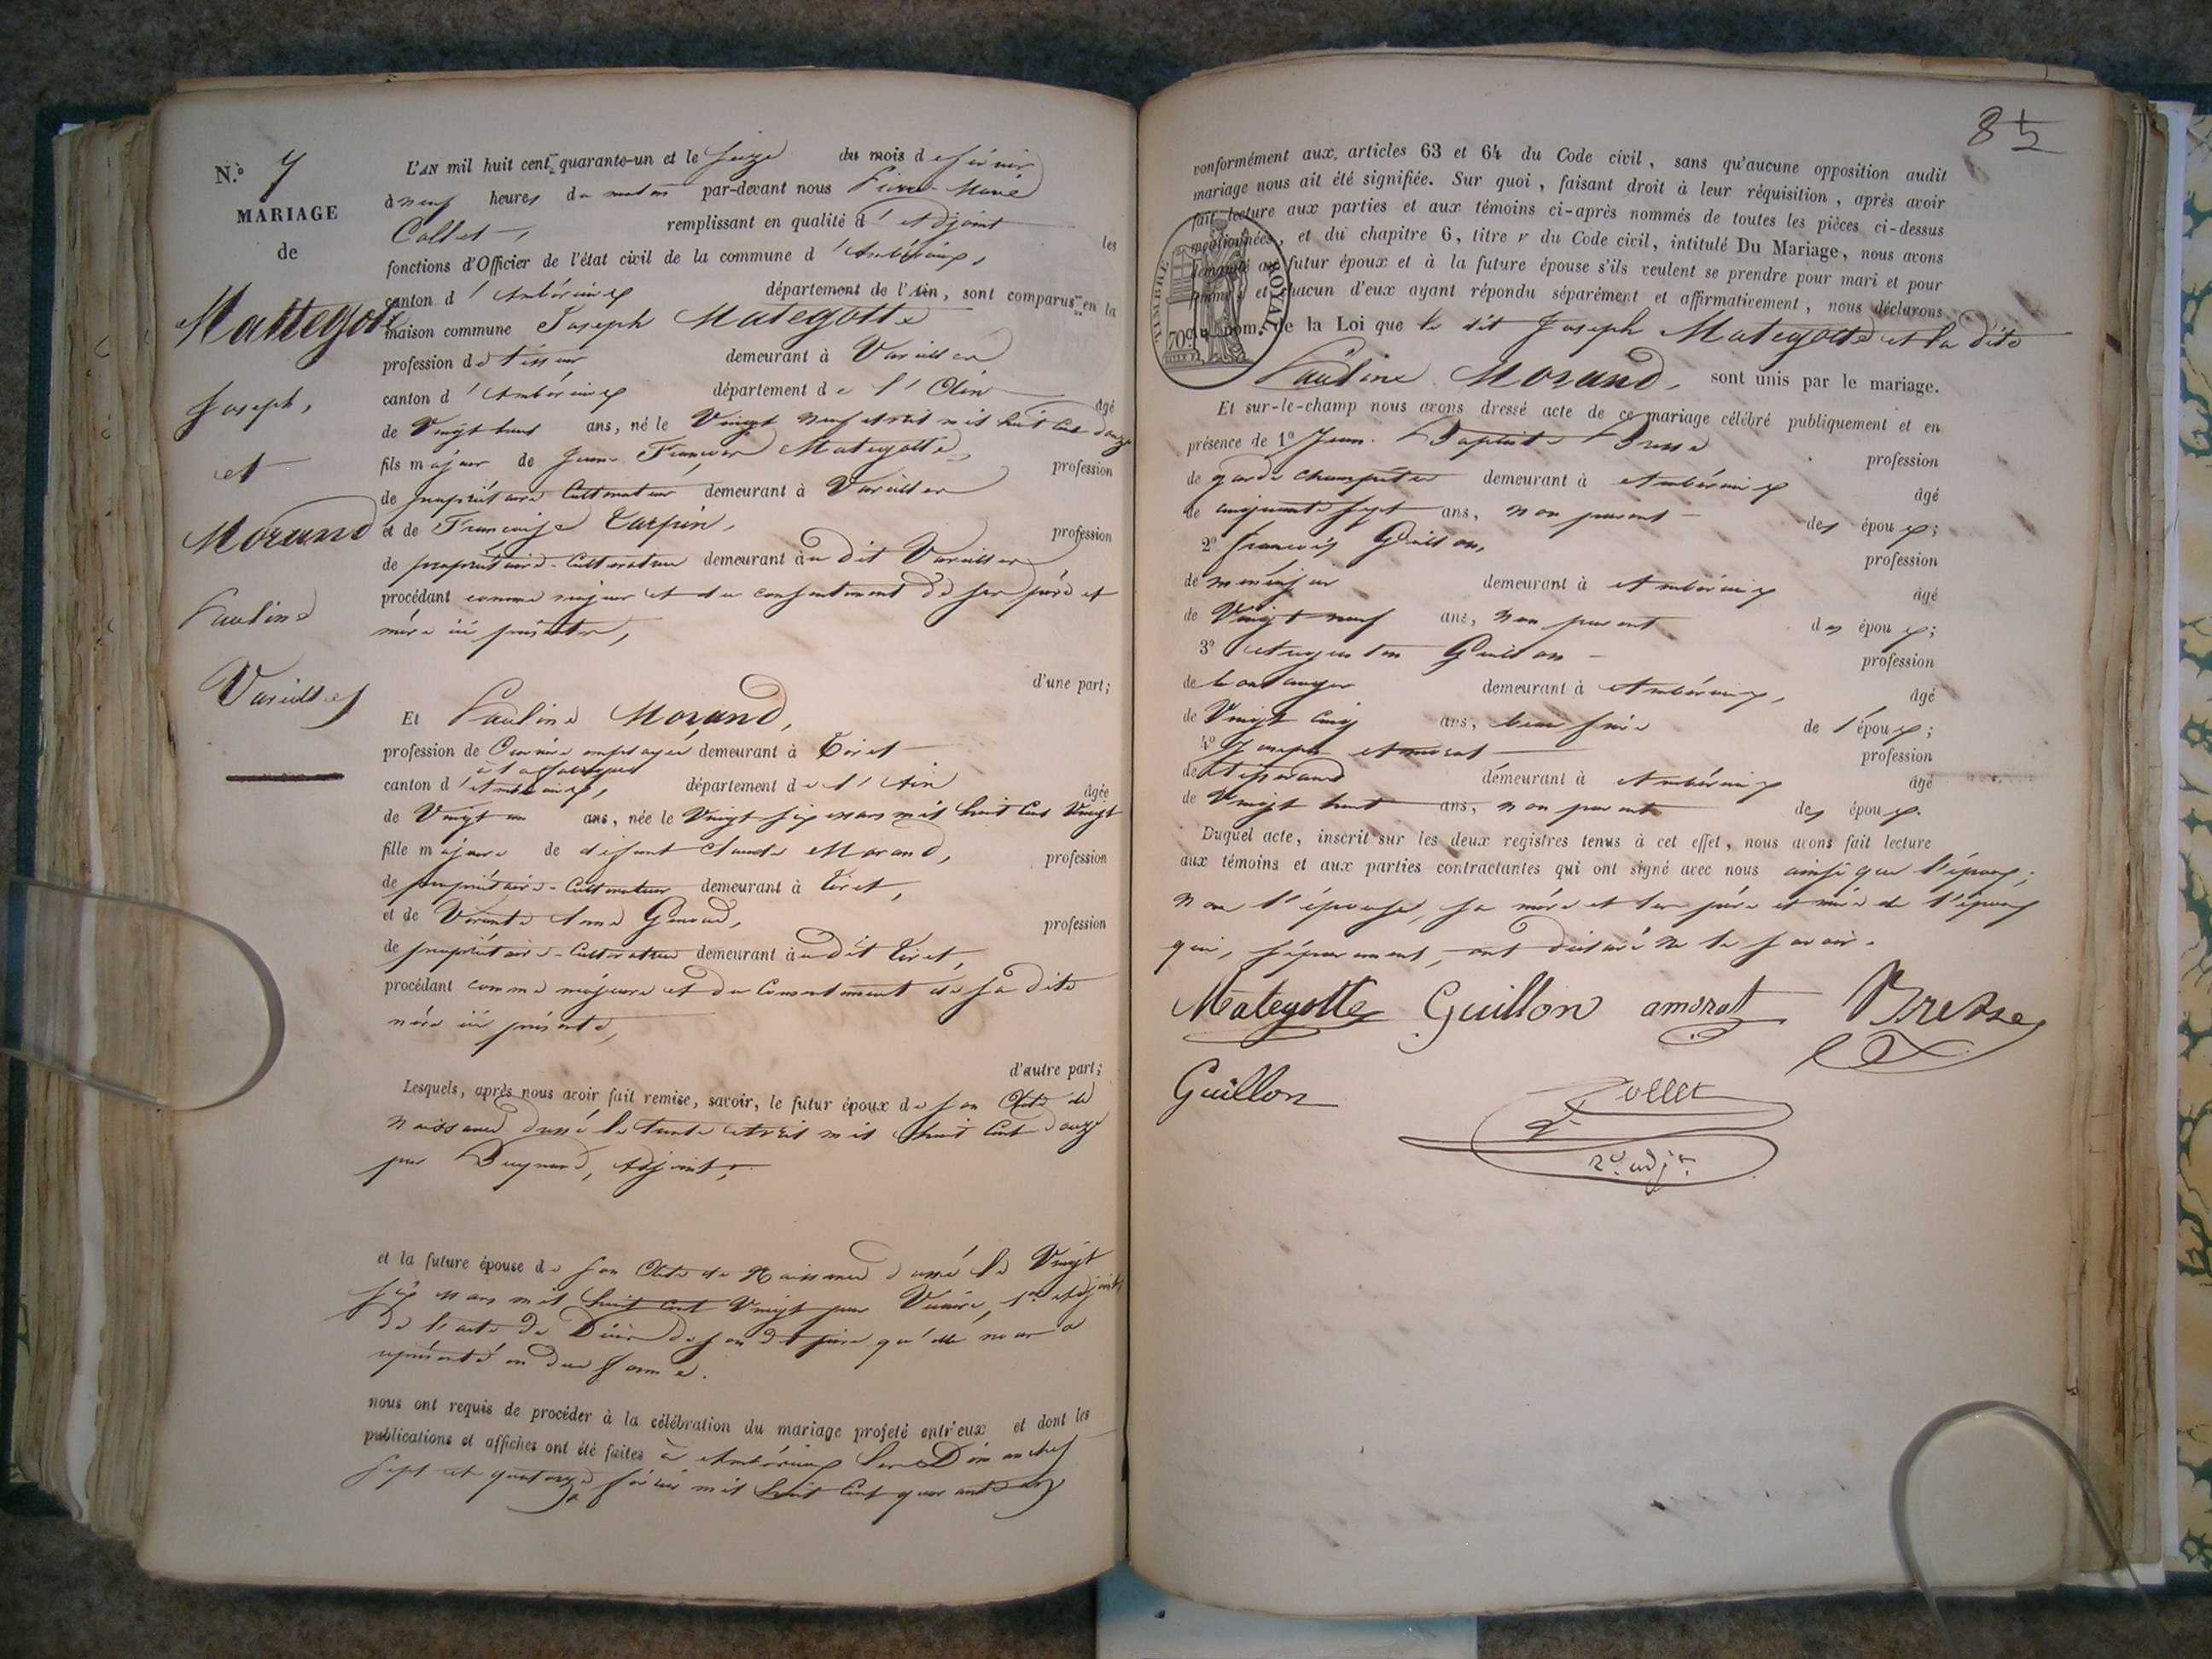 N.° 7
MARIAGE
de
Mattegotte
Joseph,
et
Morand
Pauline
Varielles
L'AN mil huit cent quarante-un et le seize du mois de février
à neuf heures du matin par-devant nous Pierre-Marie
Collet, remplissant en qualité d'adjoint les
fonctions d'Officier de l'état civil de la commune d'Ambérieux,
canton d'Ambérieux département de l'Ain, sont comparus en la
maison commune Joseph Mategotte
profession de tisseur demeurant à Varielles
canton d'Ambérieux département de l'Ain âgé
de Vingt huit ans, né le Vingt neuf avril mil huit cent douze
fils majeur de Jean François Mategotte, profession
de propriétaire Cultivateur demeurant à Varielles
et de Françoise Tarpin, profession
de propriétaire-Cultivateur demeurant au dit Varielles
procédant comme majeur et du consentement de ses père et
mère ici présents,
d'une part;
Et Pauline Morand,
profession de Ouvrière employée demeurant à Tiret
à la fabrique
canton d'Ambérieux, département de l'Ain âgée
de Vingt un ans, née le Vingt six mars mil huit cent Vingt
fille majeure de défunt Claude Morand, profession
de propriétaire-Cultivateur demeurant à Tiret,
et de Vivante Anne Genoud, profession
de propriétaire-Cultivateur demeurant au dit Tiret,
procédant comme majeure et du Consentement de sa dite
mère ici présente,
d'autre part;
Lesquels, après nous avoir fait remise, savoir, le futur époux de son Acte de
Naissance dressé le trente avril mil huit cent douze
par Adjoint,
et la future épouse de son Acte de Naissance dressé le Vingt
six mars mil huit cent Vingt par 1er adjoint,
de l'acte de Décès de son dit père qu'elle nous a
représenté en due forme.
nous ont requis de procéder à la célébration du mariage projeté entr'eux et dont les
publications et affiches ont été faites à Ambérieux les Dimanches
sept et quatorze février mil huit cent quarante un
85
conformément aux articles 63 et 64 du Code civil, sans qu'aucune opposition audit
mariage nous ait été signifiée. Sur quoi, faisant droit à leur réquisition, après avoir
fait lecture aux parties et aux témoins ci-après nommés de toutes les pièces ci-dessus
mentionnées, et du chapitre 6, titre v du Code civil, intitulé Du Mariage, nous avons
demandé au futur époux et à la future épouse s'ils veulent se prendre pour mari et pour
femme; et chacun d'eux ayant répondu séparément et affirmativement, nous déclarons
au nom de la Loi que le dit Joseph Mategotte et la dite
TIMBRE ROYAL
70c
Pauline Morand, sont unis par le mariage.
Et sur-le-champ nous avons dressé acte de ce mariage célébré publiquement et en
présence de 1° Jean-Baptiste Bresse profession
de garde champêtre demeurant à Ambérieux âgé
de cinquante sept ans, non parent des époux;
2° François Guillon, profession
de menuisier demeurant à Ambérieux âgé
de Vingt neuf ans, non parent des époux;
3° Augustin Guillon profession
de boulanger demeurant à Ambérieux, âgé
de Vingt cinq ans, beau frère de l'époux;
4° Joseph Amorat profession
de tisserand demeurant à Ambérieux âgé
de Vingt huit ans, non parent des époux.
Duquel acte, inscrit sur les deux registres tenus à cet effet, nous avons fait lecture
aux témoins et aux parties contractantes qui ont signé avec nous ainsi que l'époux;
non l'épouse, sa mère et les père et mère de l'époux
qui, séparément, ont déclaré ne le savoir.
Mategotte Guillon amorat Bresse
Guillon
Collet
2e adjt